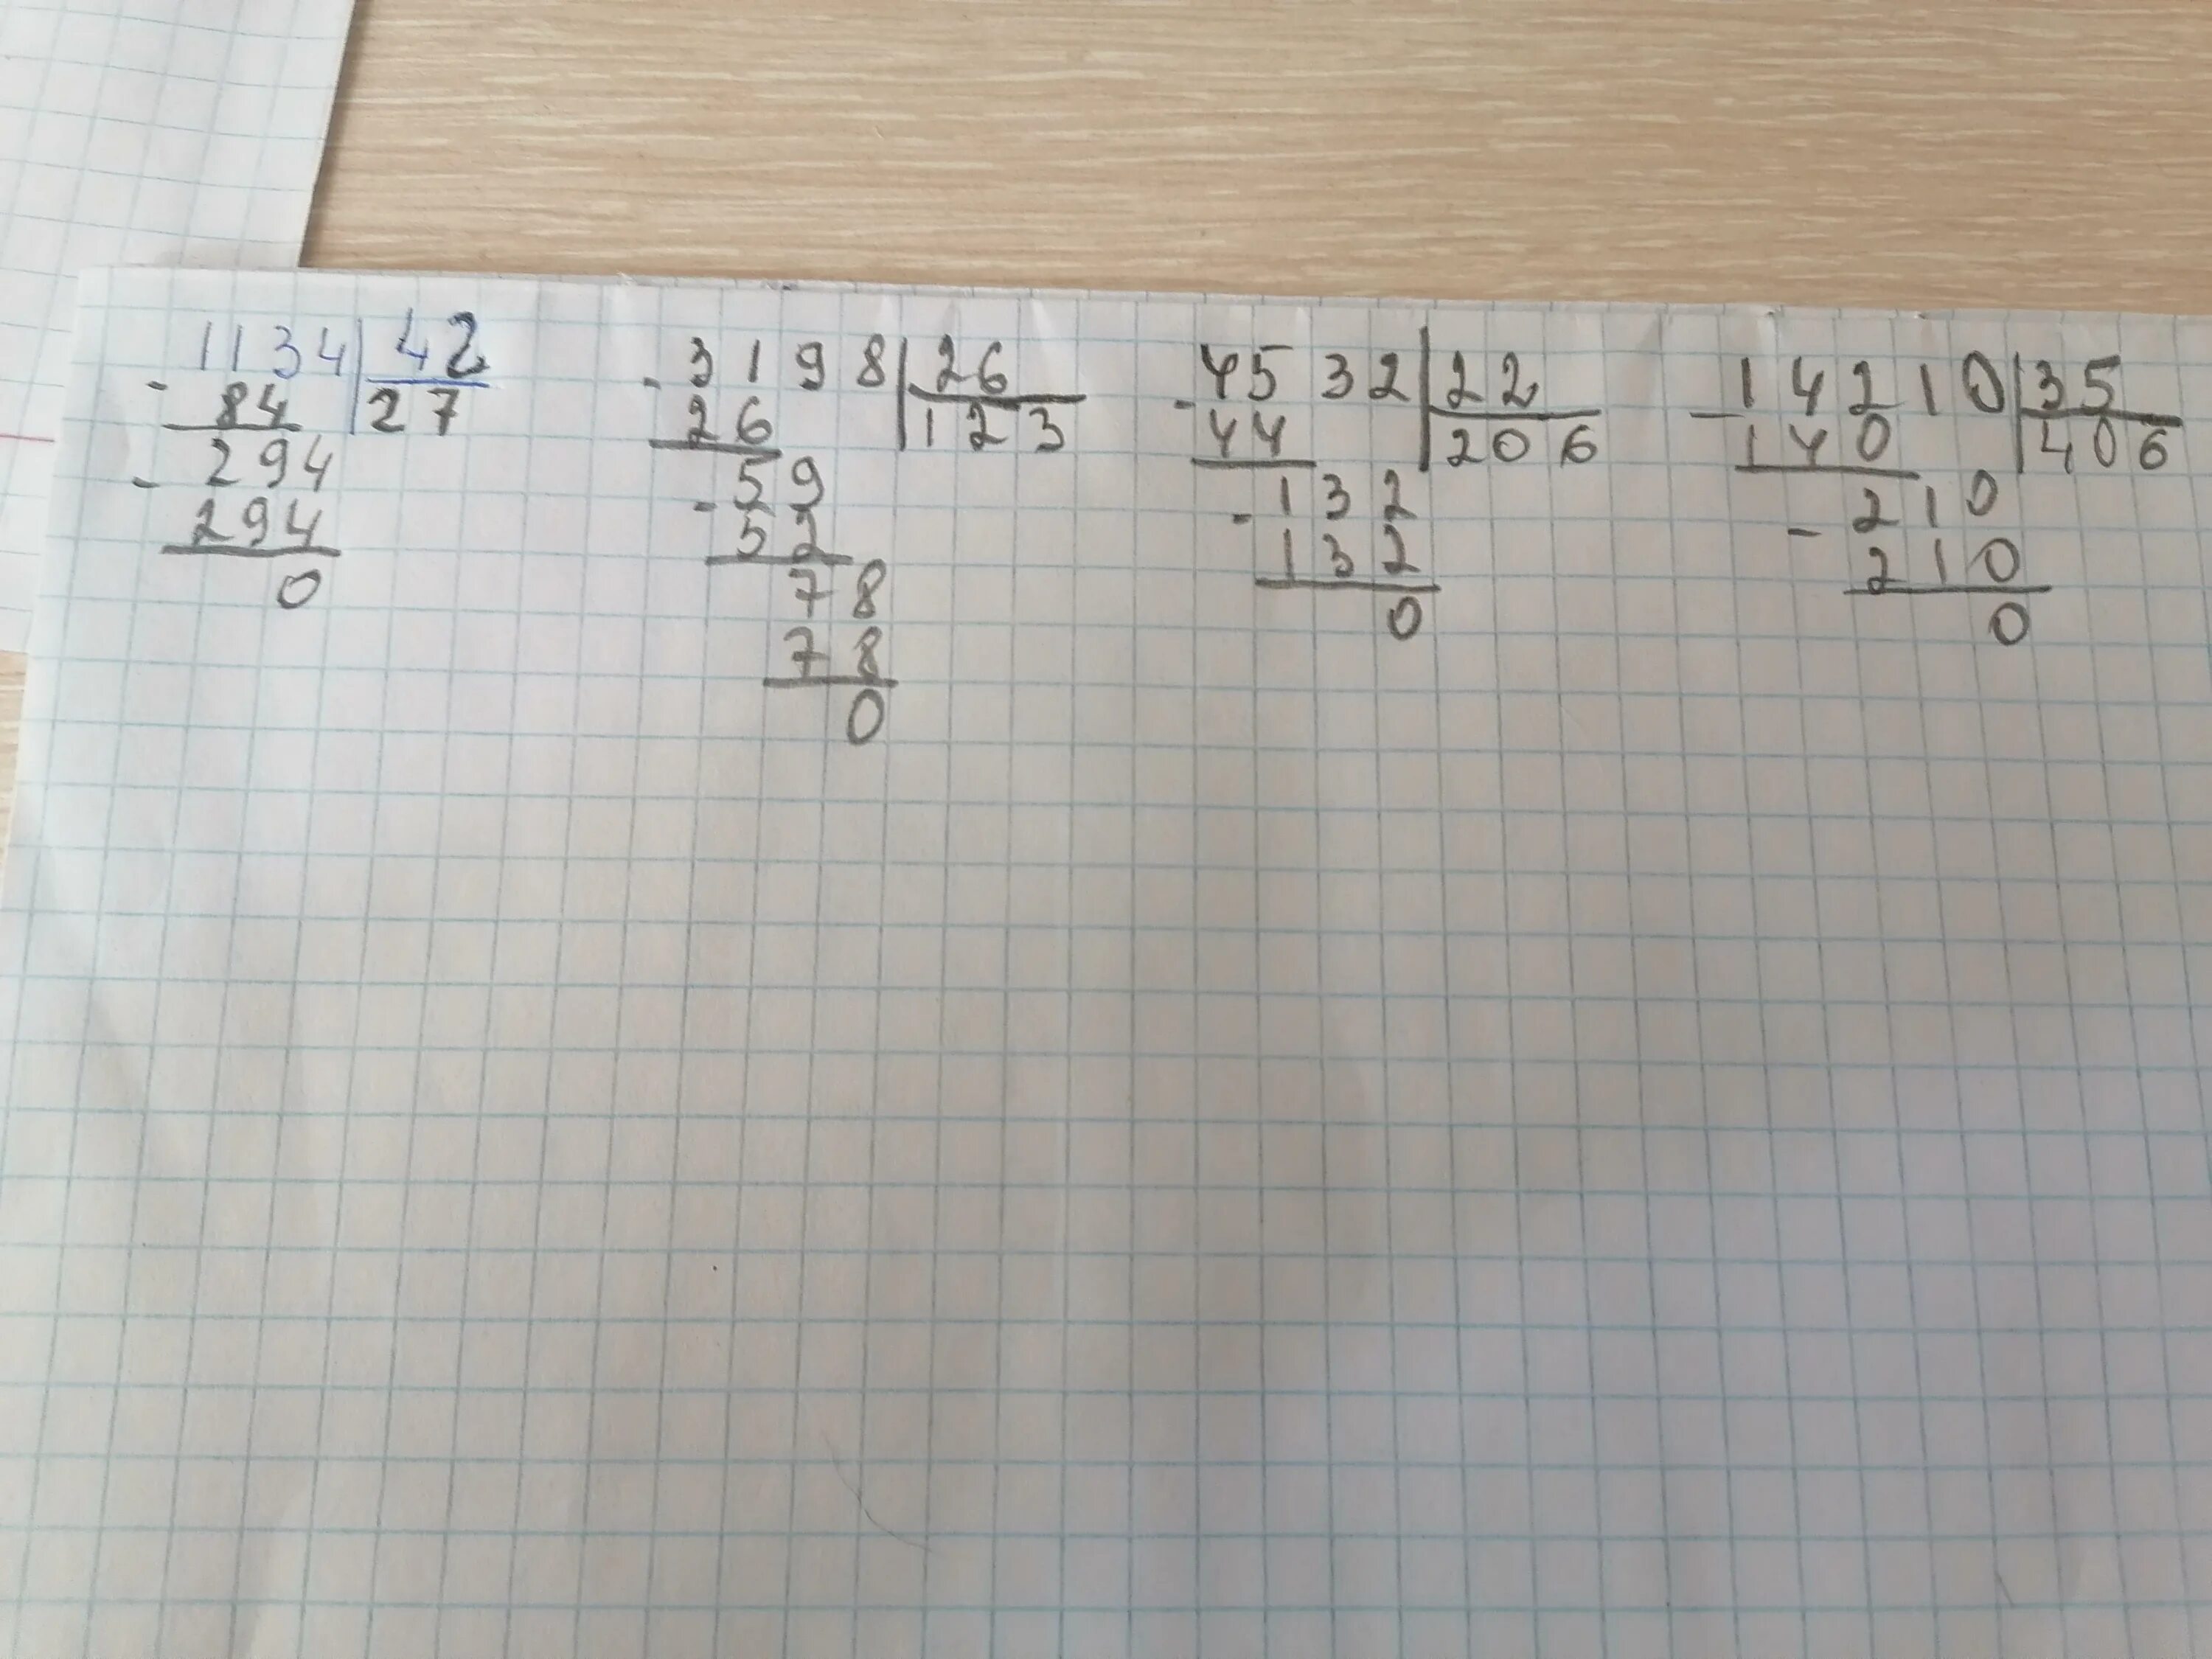 1134 42
- 84 27
- 294
294
0
- 3198 26
26 123
- 59
52
78
78
0
- 4532 22
44 206
- 132
132
0
- 14210 35
140 406
- 210
210
0